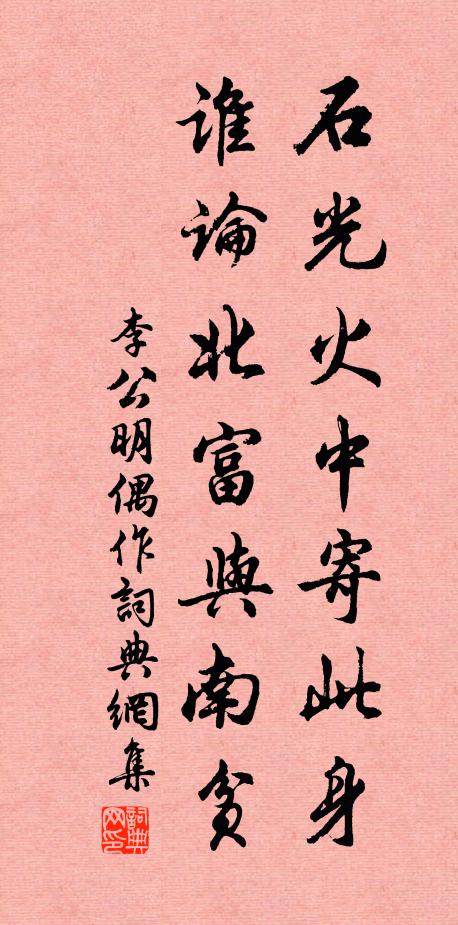 石光火中寄此身
誰論北富與南貧
李公明偶作詞典網集
詞典網印